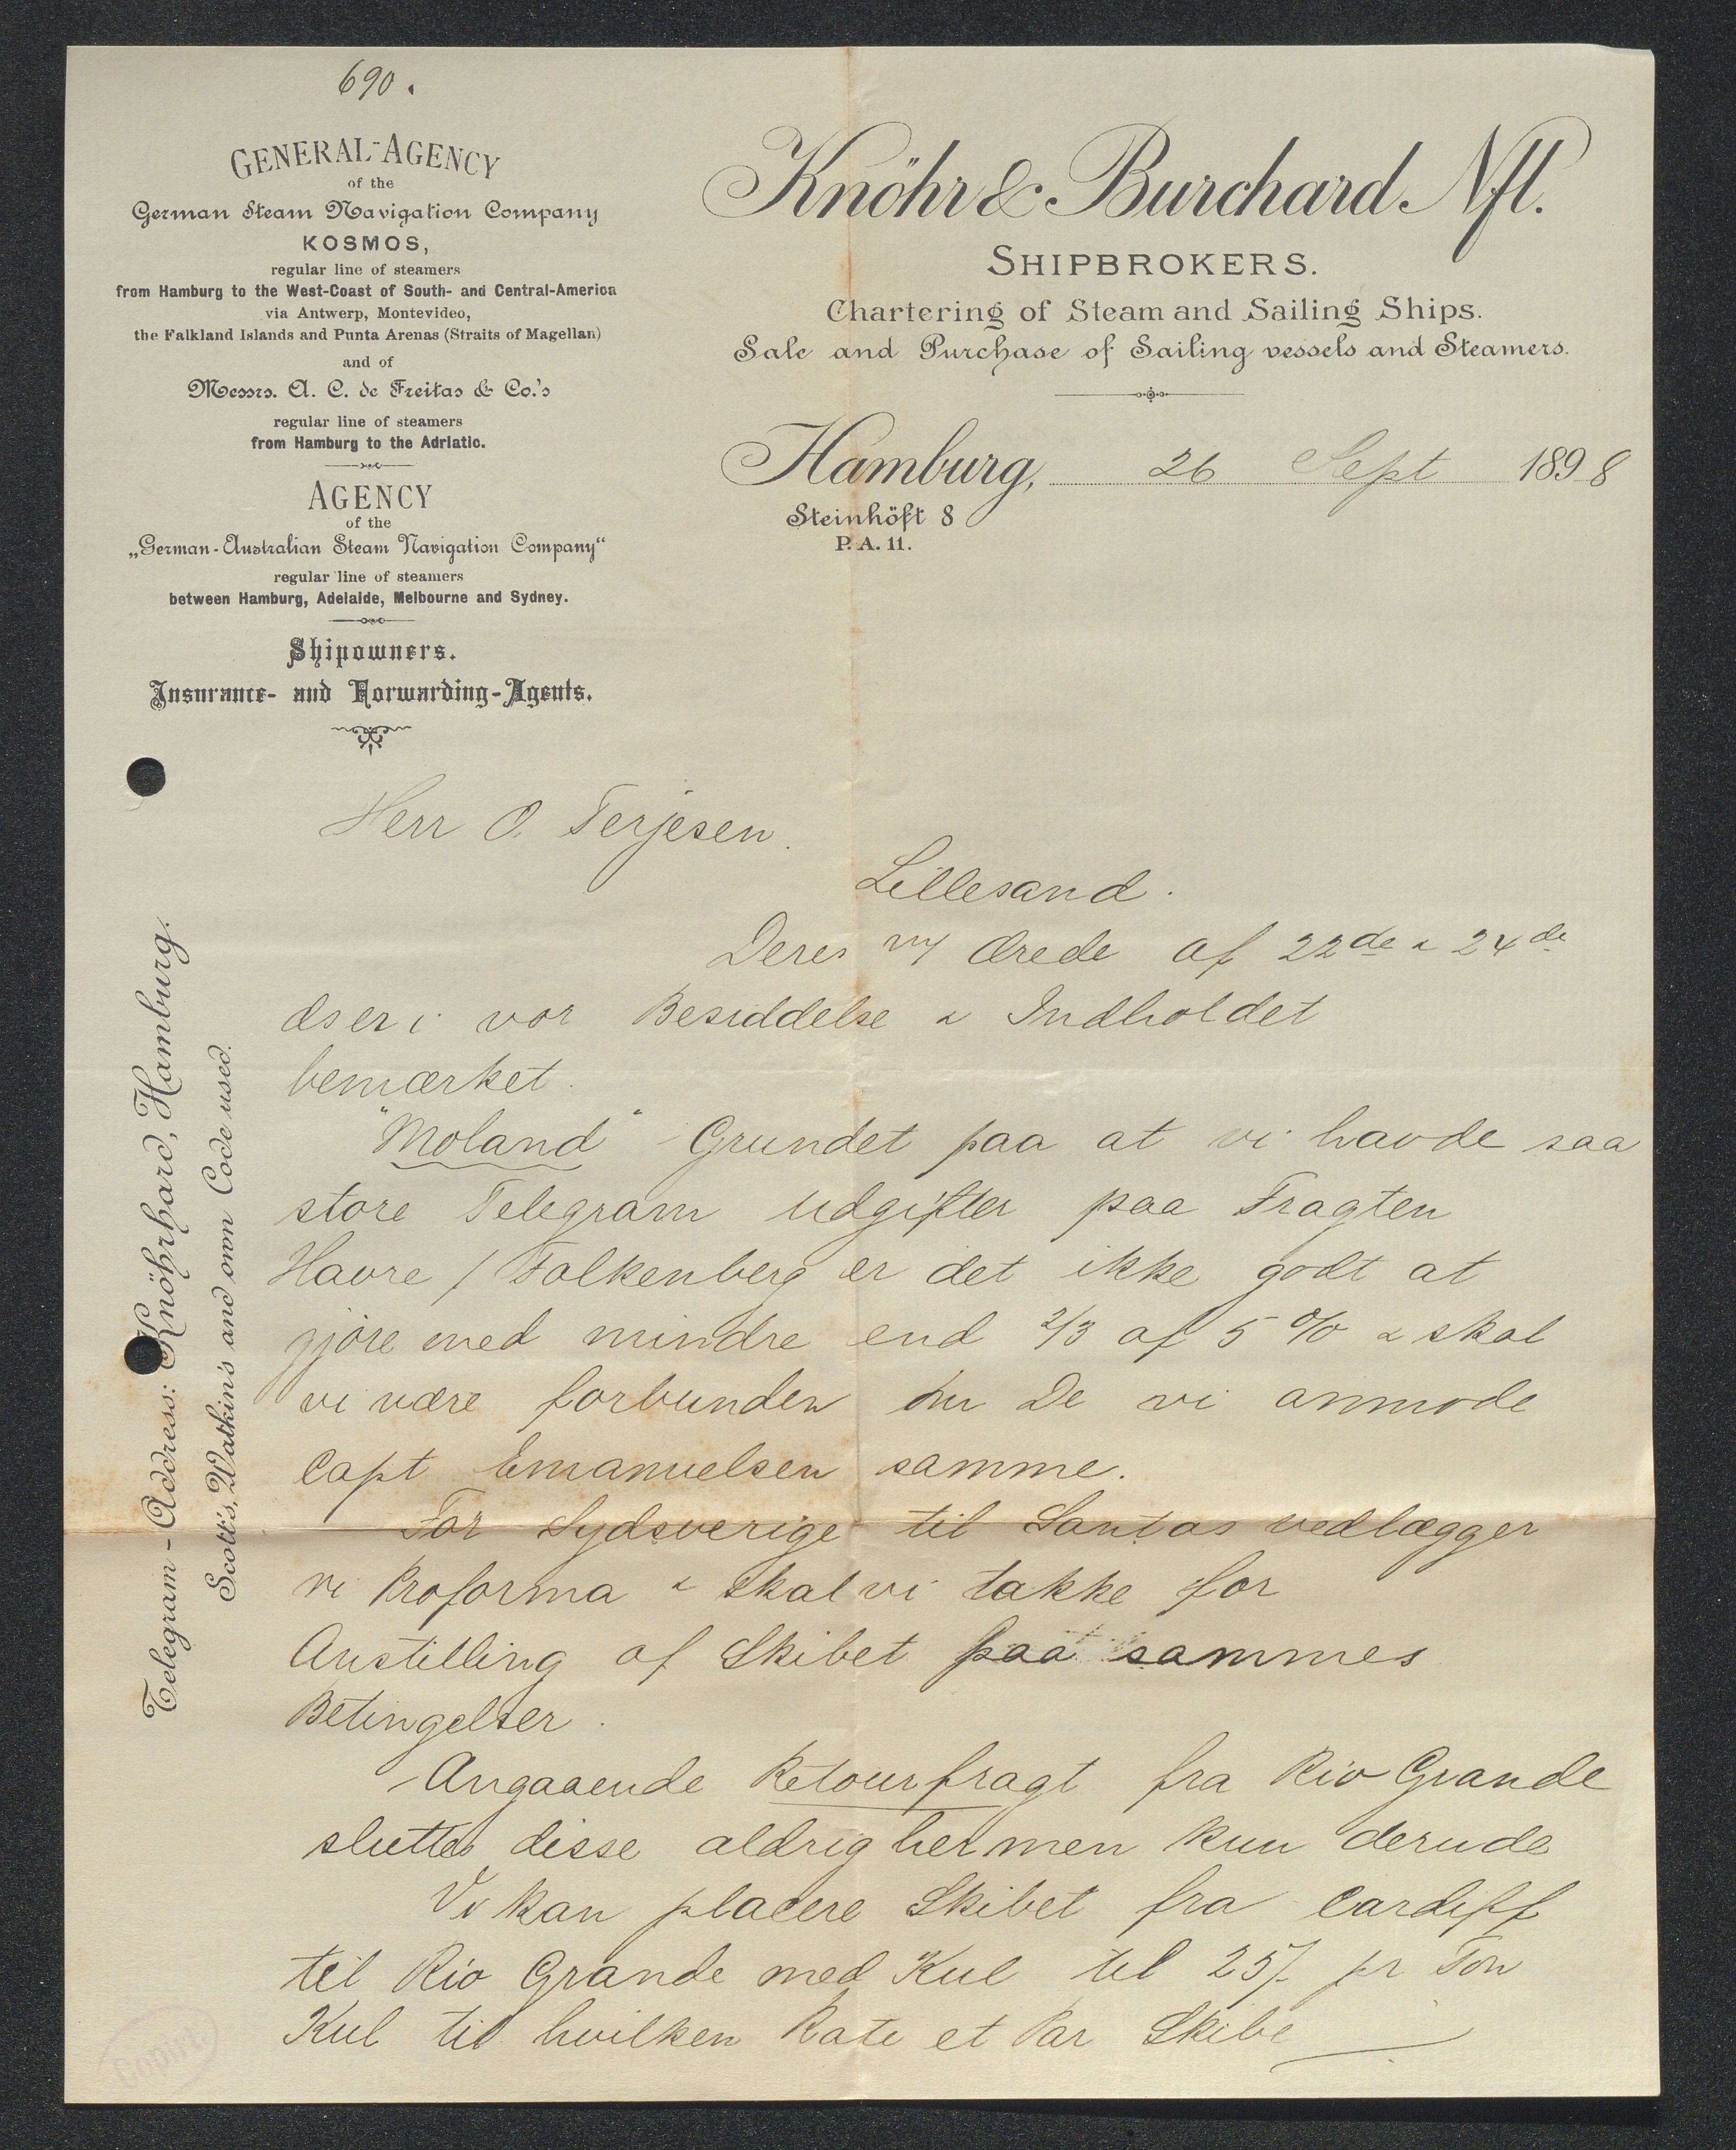 690.
GENERAL-AGENCY
of the
German Steam Navigation Company
KOSMOS,
regular line of steamers
from Hamburg to the West-Coast of South- and Central-America
via Antwerp, Montevideo,
the Falkland Islands and Punta Arenas (Straits of Magellan)
and of
Messrs. A. C. de Freitas & Co.'s
regular line of steamers
from Hamburg to the Adriatic.
AGENCY
of the
„German-Australian Steam Navigation Company“
regular line of steamers
between Hamburg, Adelaide, Melbourne and Sydney.
Shipowners.
Insurance- and Forwarding-Agents.
Knöhr & Burchard Nfl.
SHIPBROKERS.
Chartering of Steam and Sailing Ships.
Sale and Purchase of Sailing vessels and Steamers.
Hamburg, 26 Sept 1898
Steinhöft 8
P. A. 11.
Telegram-Address: Knöhrhard, Hamburg.
Scott's, Watkin's and own Code used.
Herr O. Terjesen.
Lillesand.
Deres ærede af 22de & 24de
ds er i vor Besiddelse & Indholdet
bemærket.
"Moland" Grundet paa at vi havde saa
store Telegram udgifter paa Fragten
Havre / Falkenberg er det ikke godt at
gjöre med mindre end 2/3 af 5 % & skal
vi være forbunden om De vi anmode
Capt Emanuelsen samme.
For Sydsverige til Santos vedlægger
vi Proforma & skal vi takke for
Anstilling af Skibet paa sammes
Betingelser.
Angaaende Retourfragt fra Rio Grande
sluttes disse aldrig her men kun derude
Vi kan placere Skibet fra Cardiff
til Rio Grande med Kul til 25/- pr Ton
Kul til hvilken Rate et Par Skibe